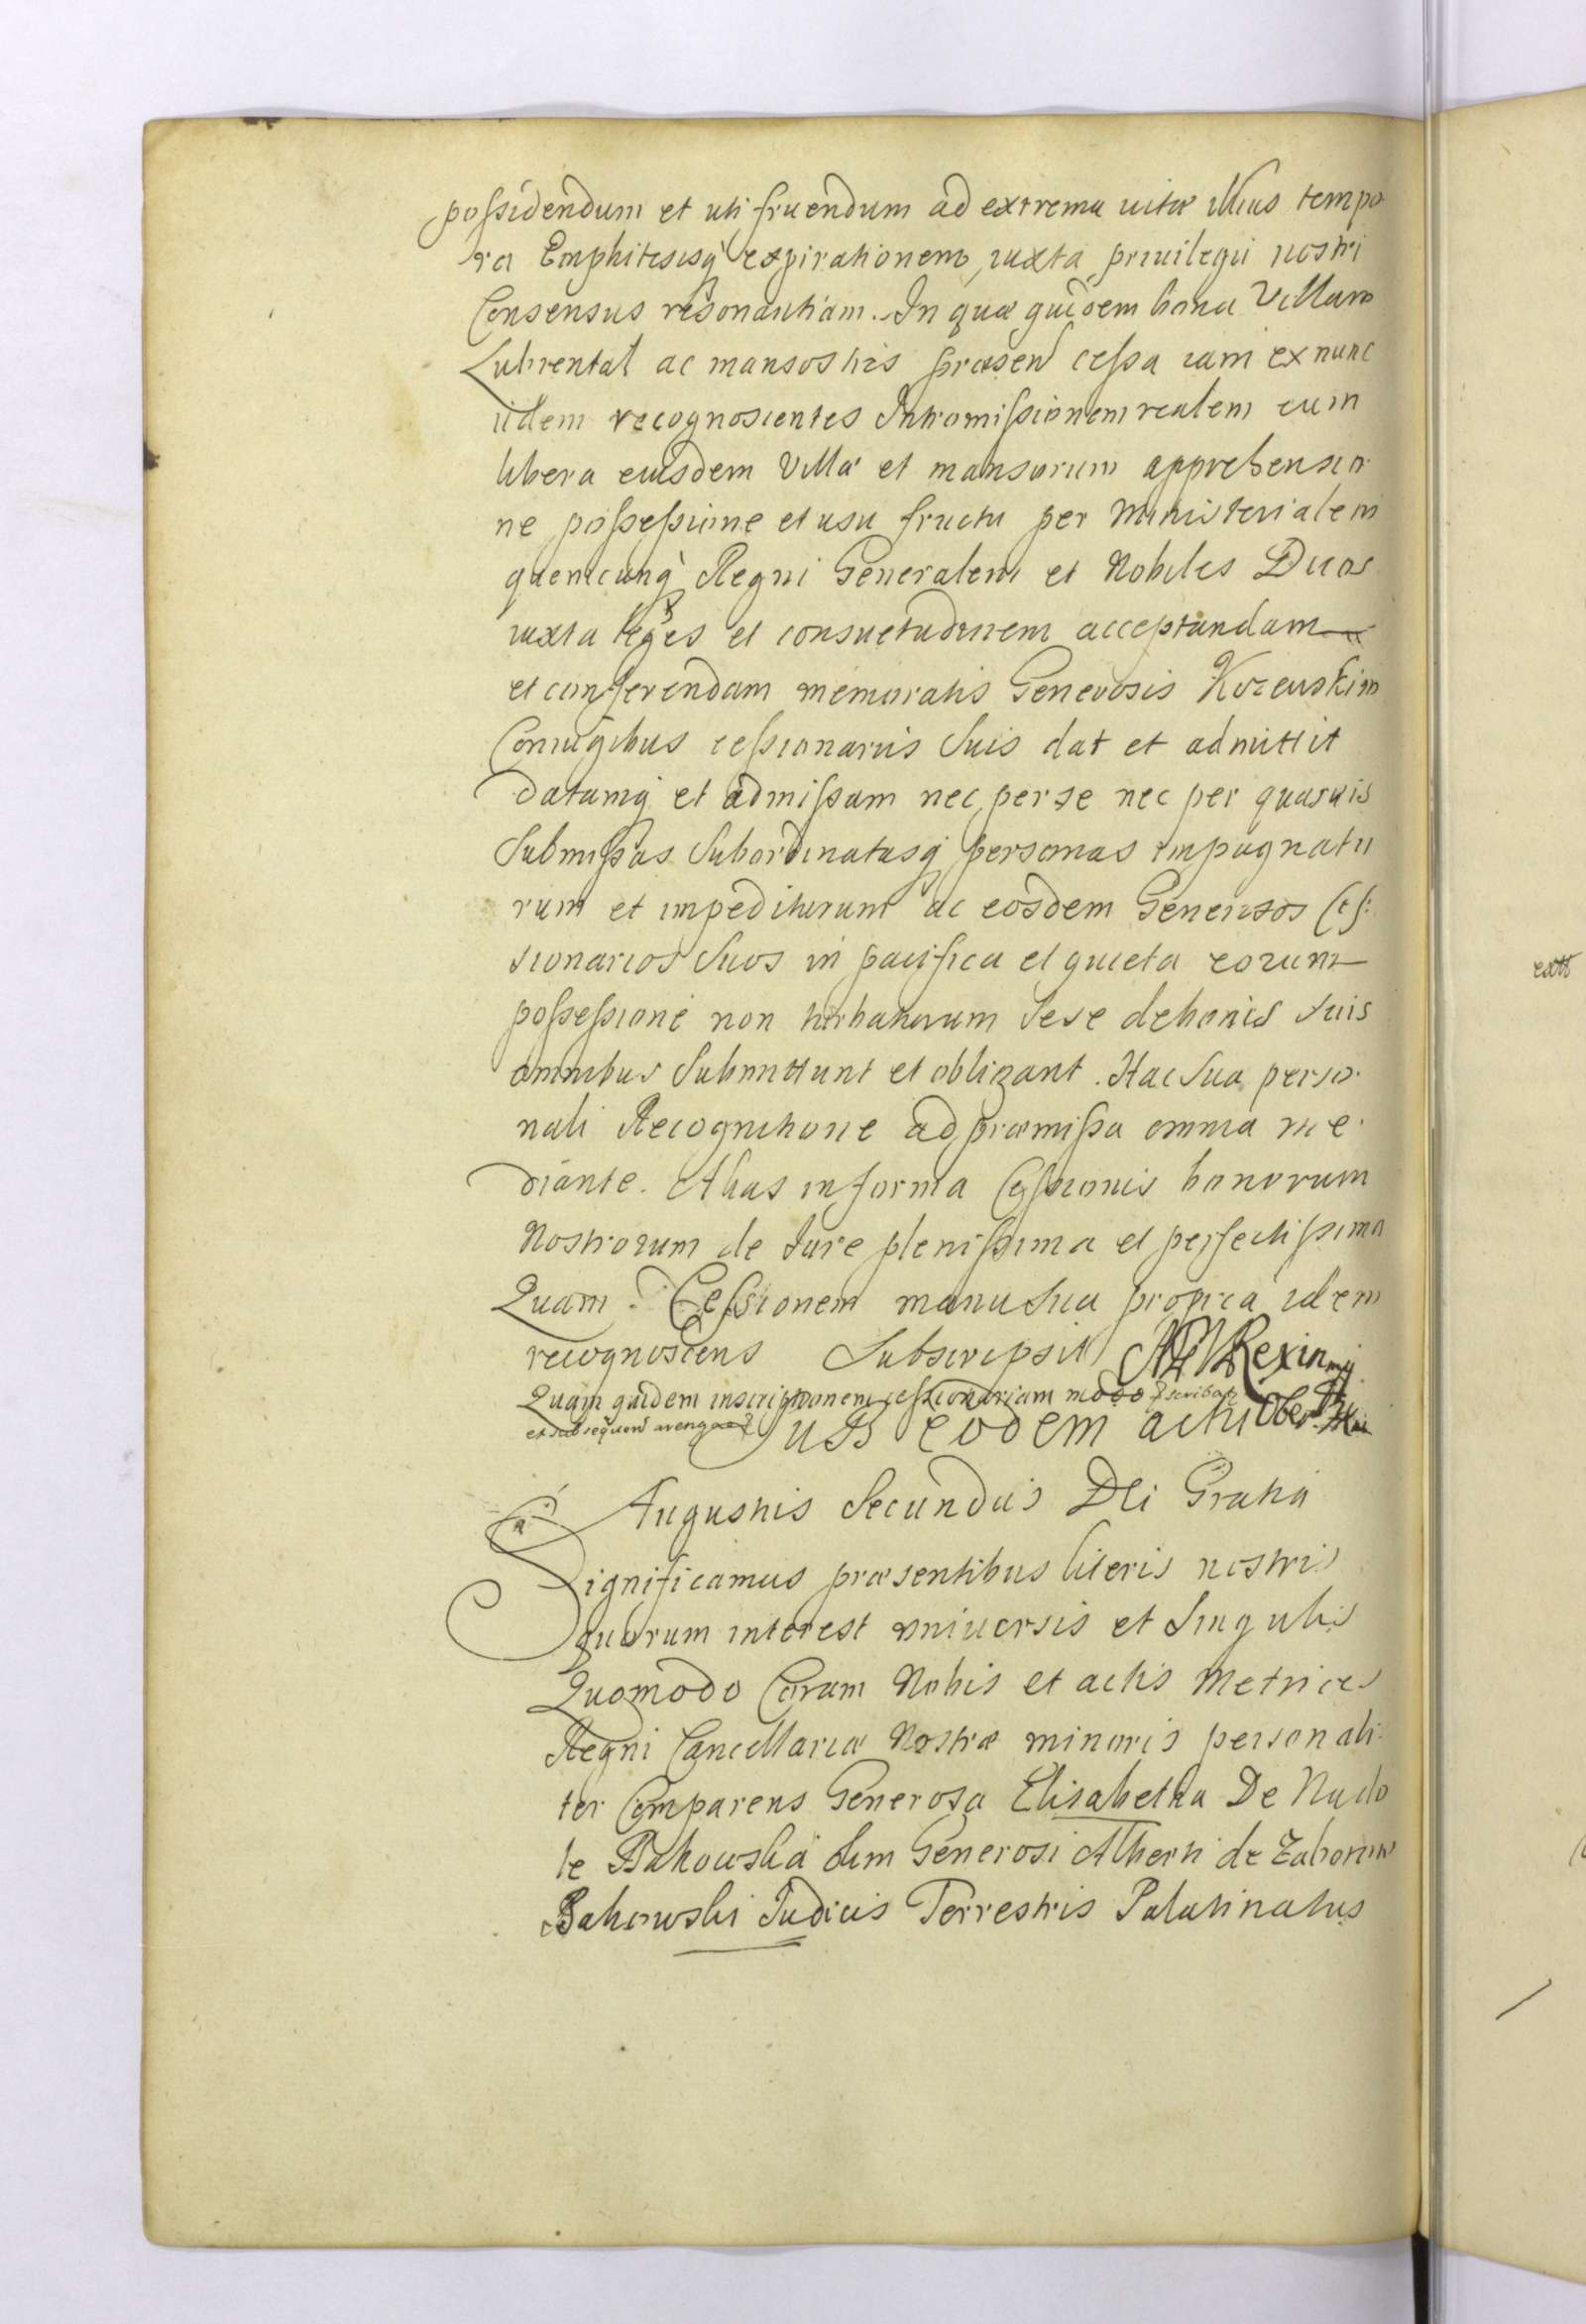 possidendum et uti fruendum ad extrema vitæ illius tempo
ra Emphitesisq expirationem, iuxta privilegii nostri
Consensus resonantiam. In quæ quidem bona Villam
Lubrental ac mansos his præsen cessa iam ex nunc
iidem recognoscentes Intromissionem realem cum
libera eiusdem Villæ et mansorum apprehensio
ne possessione et usu fructu per Ministerialem
quemcunq Regni Generalem et Nobiles Duos
iuxta leges et consuetudinem acceptandam
et conferendam memoratis Generosis Kozeuskim
Coniugibus cessionariis Suis dat et admittit
datamq et admissam nec per se nec per quasvis
Submissas Subordinatasq personas impugnatu
rum et impediturum ac eosdem Generosos Ces:
sionarios Suos in pacifica et quieta eorum
possessione non turbaturum Sese de bonis suis
omnibus Submittunt et obligant. Hac Sua perso
nali Recognitione ad præmissa omnia me
diante. Alias in forma Cessionis bonorum
Nostrorum de Iure plenissima et perfectissima
Quam Cessionem manu Sua propria idem
recognoscens Subscripsit Rexin mp
Quam quidem inscriptionem cessionariam modo
et subsequen
eodem actu
Augustus Secundus Dei Gratia
Significamus præsentibus literis nostris
quorum interest universis et Singulis
Quomodo Coram Nobis et actis Metrices
Regni Cancellariæ Nostræ minoris personali
ter Comparens Generosa Elisabetha De Nado
le Bakowska olim Generosi Alberti de Zaborow
Bakowski Iudicis Terrestris Palatinatus